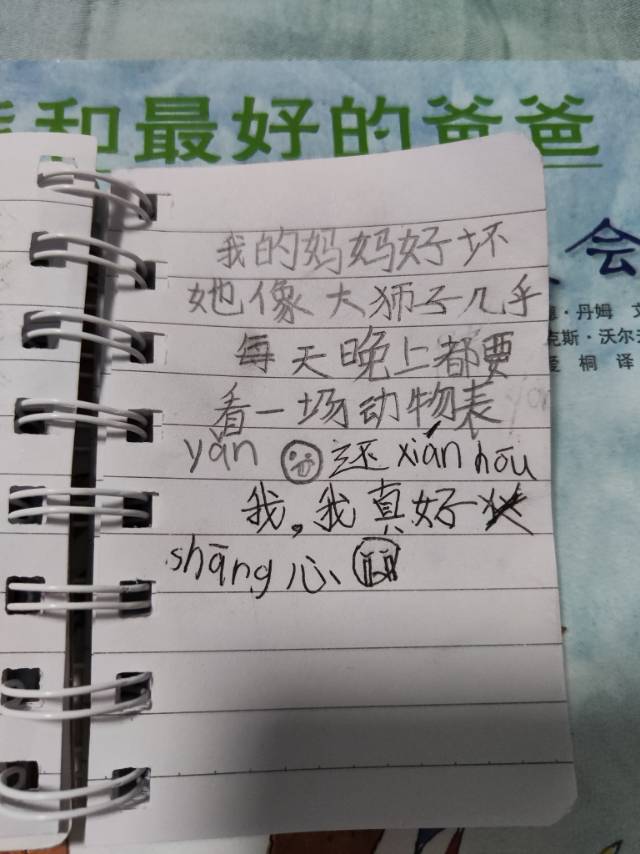 和最好的爸爸
会
·丹姆 文
克斯·沃尔
桐 译
我的妈妈好坏
她像大狮子几乎
每天晚上都要
看一场动物表
yǎn 还xián hōu
我。我真好
shāng心